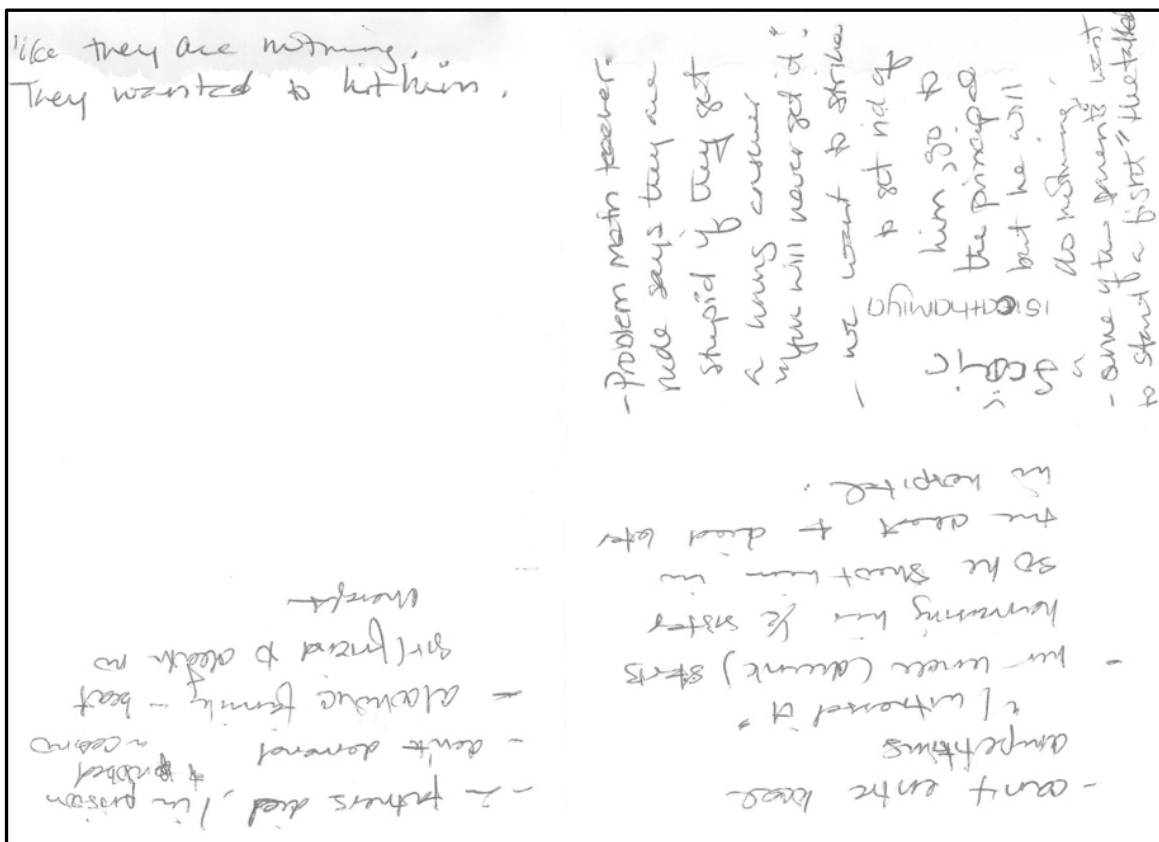 like they are nothing.
They wanted to hit him.
- Problem math teacher.
rude says they are
stupid if they get
a wrong answer
"you will never get it".
- we want to strike
to get rid of
him, go to
the principal
but he will
do nothing.
ISICATHAMIYA
- some of the parents want
to start a fight" he talked
- can't enter
competitions
"I witnessed it"
- his uncle (drunk) starts
harrassing his 1/2 sister
so he shoot him in
the chest + died later
in hospital.
- 2 fathers died, 1 in prison
robbed
a casino
- don't demand
- abusive family - beat
girlfriend to death no